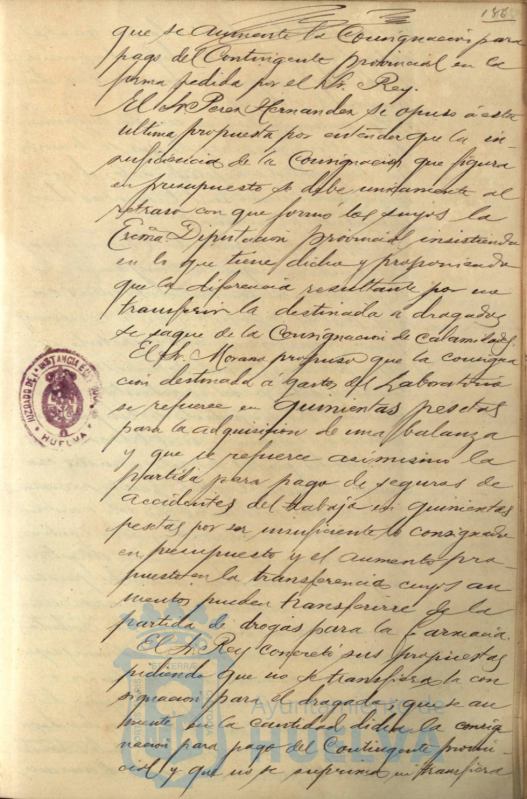 186
que se aumente la Consignación para
pago del Contingente provincial en la
forma pedida por el Sr. Rey.
El Sr. Perez Hernandez se opuso á esta
ultima propuesta por entender que la in-
suficiencia de la Consignación que figura
en presupuesto se debe unicamente al
retraso con que formó los suyos la
Excma. Diputación provincial, insistiendo
en lo que tiene dicho y proponiendo
que la diferencia resultante por no
transferir la destinada a dragados
se saque de la Consignación de Calamidades.
El Sr. Morano propuso que la consigna
ción destinada á gastos del Laboratorio
se refuerce en quinientas pesetas
para la adquisición de una balanza
y que se refuerce asimismo la
partida para pago de seguros de
accidentes del trabajo en quinientas
pesetas por ser insuficiente lo consignado
en presupuesto y el aumento pro-
puesto en la transferencia cuyos au
mentos pueden transferirse de la
partida de drogas para la Farmacia.
El Sr. Rey concretó sus propuestas
pidiendo que no se transfiera la con
signación para el dragado y que se au
mente en la cantidad dicha la consig
nación para pago del Contingente provin-
cial y que no se suprima en transfiera
JUZGADO DE 1ª INSTANCIA E
HUELVA
Ayuntamiento de
HUELVA